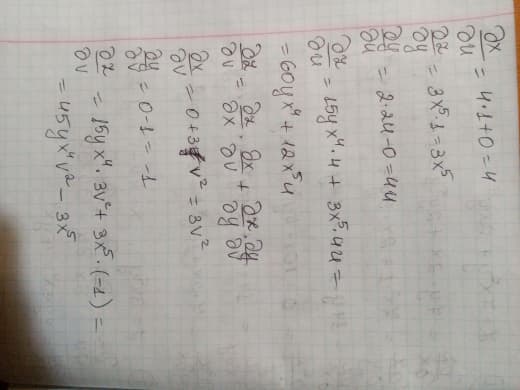 ∂x/∂u = 4·1+0=4
∂z/∂y = 3x⁵·1=3x⁵
∂y/∂u = 2·2u-0=4u
∂z/∂u = 15yx⁴·4 + 3x⁵·4u =
=60yx⁴+12x⁵u
∂z/∂v = ∂z/∂x · ∂x/∂v + ∂z/∂y · ∂y/∂v
∂x/∂v = 0+3v² = 3v²
∂y/∂v = 0-1 = -1
∂z/∂v = 15yx⁴·3v²+3x⁵·(-1) =
= 45yx⁴v² - 3x⁵